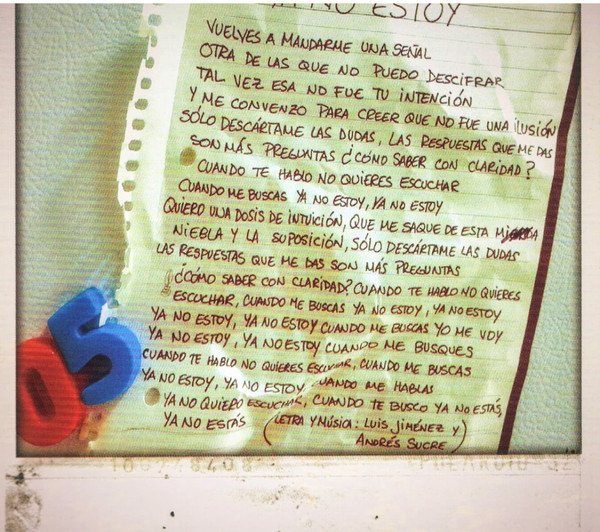 YA NO ESTOY
VUELVES A MANDARME UNA SEÑAL
OTRA DE LAS QUE NO PUEDO DESCIFRAR
TAL VEZ ESA NO FUE TU INTENCIÓN
Y ME CONVENZO PARA CREER QUE NO FUE UNA ILUSIÓN
SÓLO DESCÁRTAME LAS DUDAS, LAS RESPUESTAS QUE ME DAS
SON MÁS PREGUNTAS ¿CÓMO SABER CON CLARIDAD?
CUANDO TE HABLO NO QUIERES ESCUCHAR
CUANDO ME BUSCAS YA NO ESTOY, YA NO ESTOY
QUIERO UNA DOSIS DE INTUICIÓN, QUE ME SAQUE DE ESTA
NIEBLA Y LA SUPOSICIÓN, SÓLO DESCÁRTAME LAS DUDAS
LAS RESPUESTAS QUE ME DAS SON MÁS PREGUNTAS
¿CÓMO SABER CON CLARIDAD? CUANDO TE HABLO NO QUIERES
ESCUCHAR, CUANDO ME BUSCAS YA NO ESTOY, YA NO ESTOY
YA NO ESTOY, YA NO ESTOY CUANDO ME BUSCAS YO ME VOY
YA NO ESTOY, YA NO ESTOY CUANDO ME BUSQUES
CUANDO TE HABLO NO QUIERES ESCUCHAR, CUANDO ME BUSCAS
YA NO ESTOY, YA NO ESTOY CUANDO ME HABLAS
YA NO QUIERO ESCUCHAR, CUANDO TE BUSCO YA NO ESTÁS,
YA NO ESTÁS (LETRA Y MÚSICA: LUIS JIMÉNEZ Y
ANDRÉS SUCRE)
05